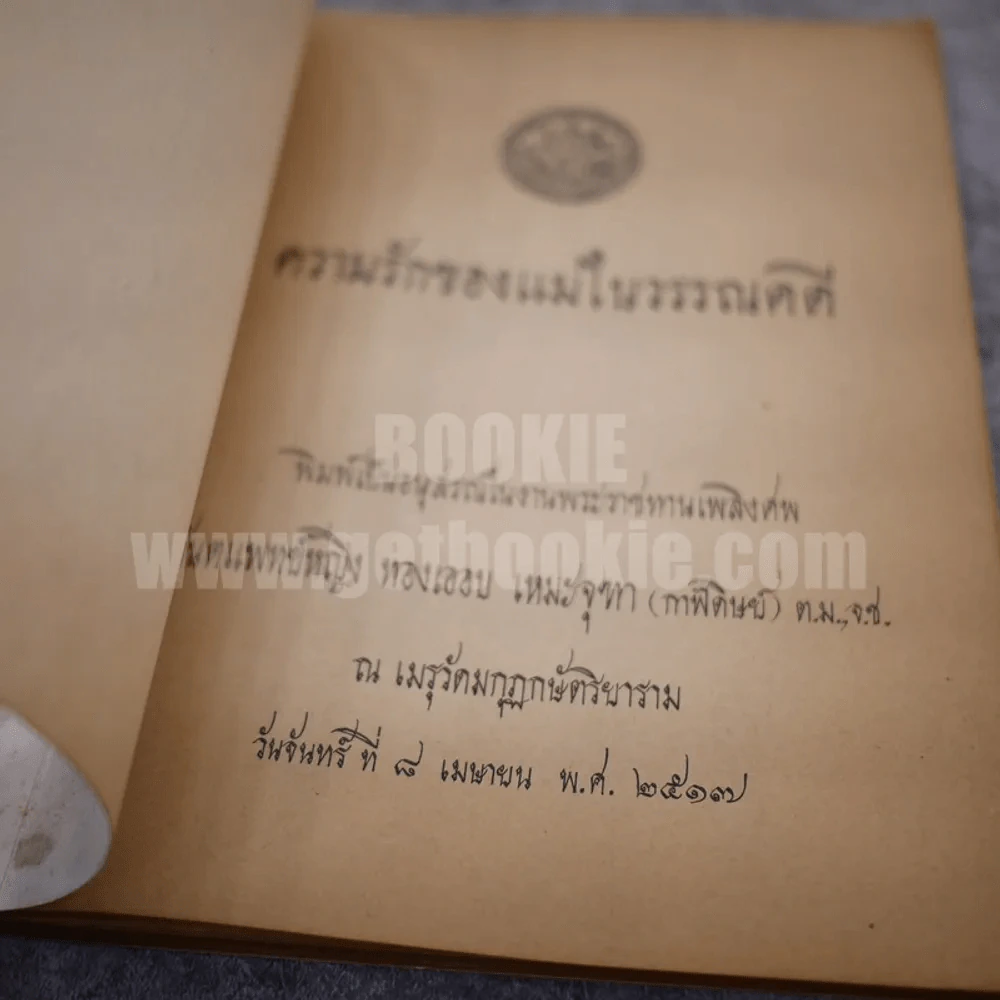 ความรักของแม่ในวรรณคดี
BOOKIE
พิมพ์เป็นอนุสรณ์ในงานพระราชทานเพลิงศพ
www.getbookie.com
ทันตแพทย์หญิง ทองเออบ เหมะจุฑา (กาฬดิษย์) ต.ม., จ.ช.
ณ เมรุวัดมกุฏกษัตริยาราม
วันจันทร์ ที่ ๘ เมษายน พ.ศ. ๒๕๑๗